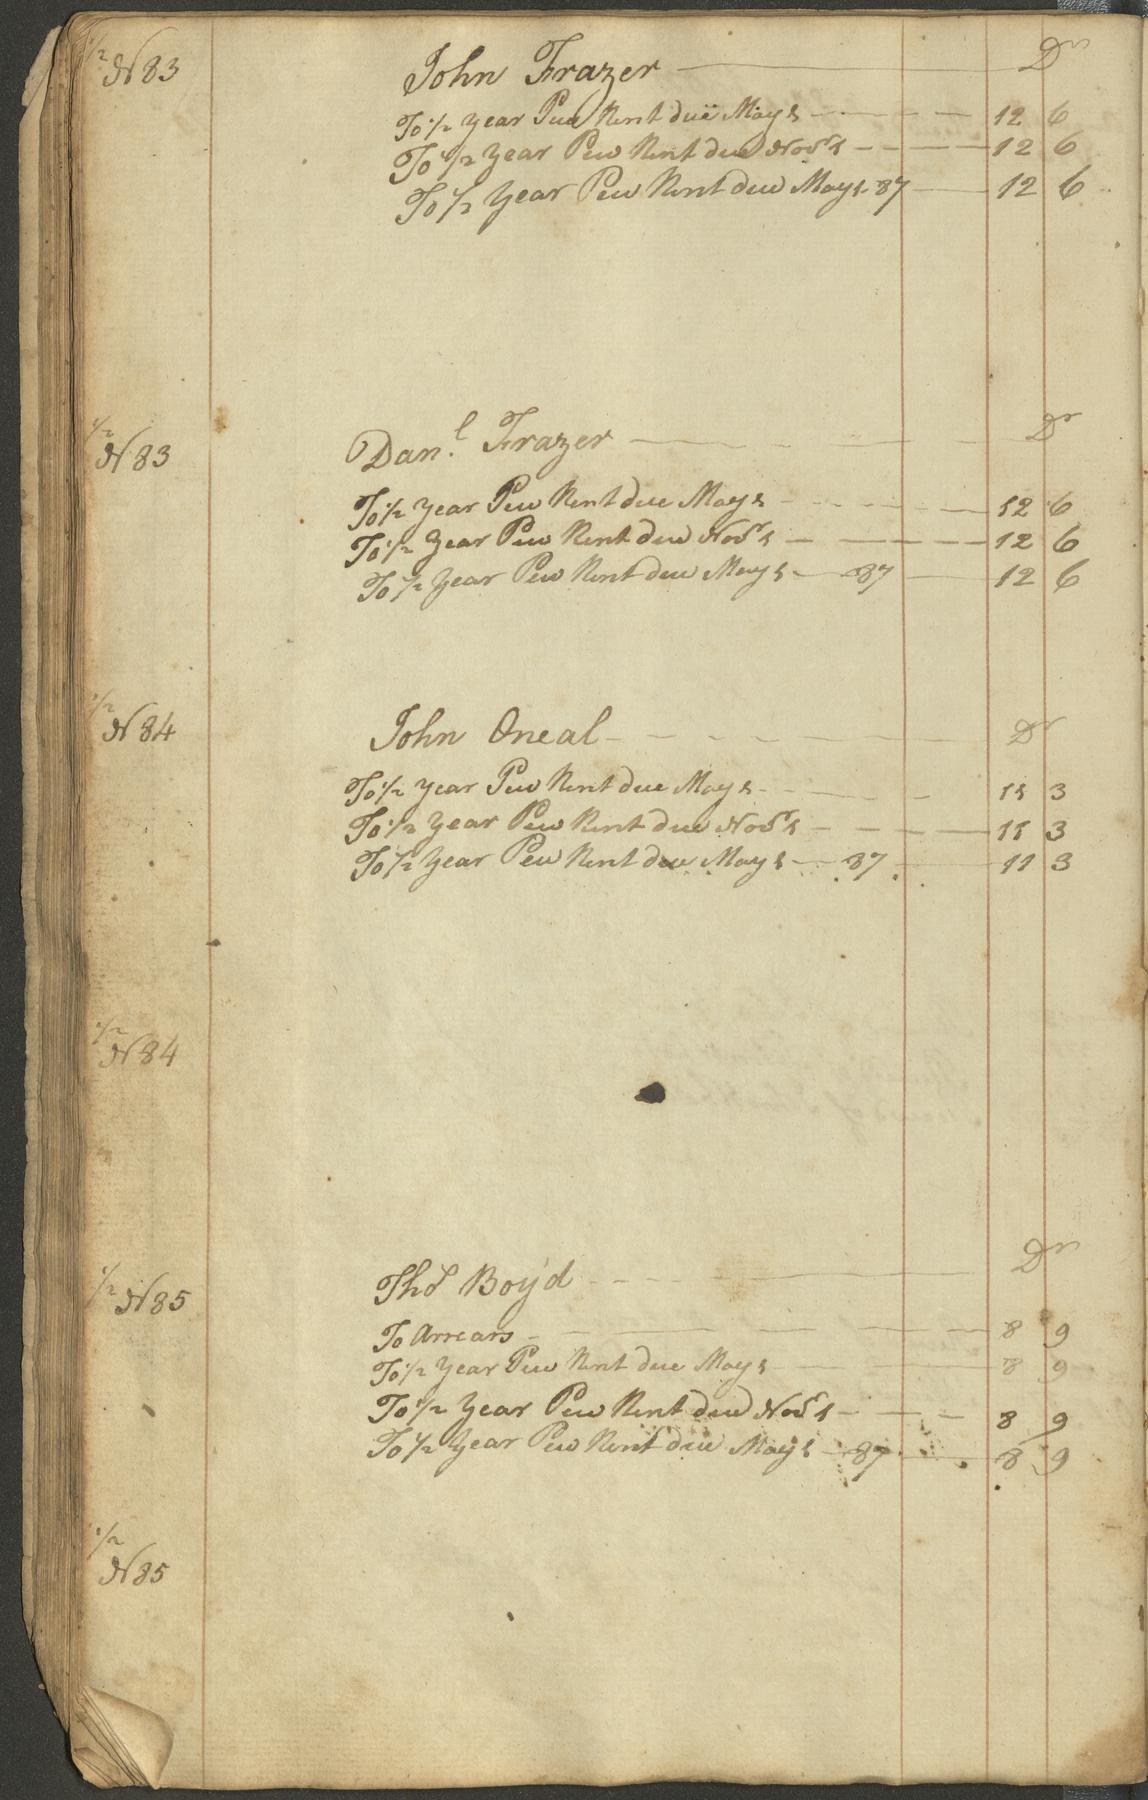 1/2 N 83 John Frazer Dr
To 1/2 Year Pew Rent due May 1 12 6
To 1/2 Year Pew Rent due Novr 1 12 6
To 1/2 Year Pew Rent due May 1 87 12 6
1/2 N 83 Danl. Frazer Dr
To 1/2 Year Pew Rent due May 1 12 6
To 1/2 Year Pew Rent due Novr 1 12 6
To 1/2 Year Pew Rent due May 1 87 12 6
1/2 N 84 John Oneal Dr
To 1/2 Year Pew Rent due May 1 11 3
To 1/2 Year Pew Rent due Novr 1 11 3
To 1/2 Year Pew Rent due May 1 87 11 3
1/2 N 84
1/2 N 85 Thos Boyd Dr
To Arrears 8 9
To 1/2 Year Pew Rent due May 1 8 9
To 1/2 Year Pew Rent due Novr 1 8 9
To 1/2 Year Pew Rent due May 1 87 8 9
1/2 N 85